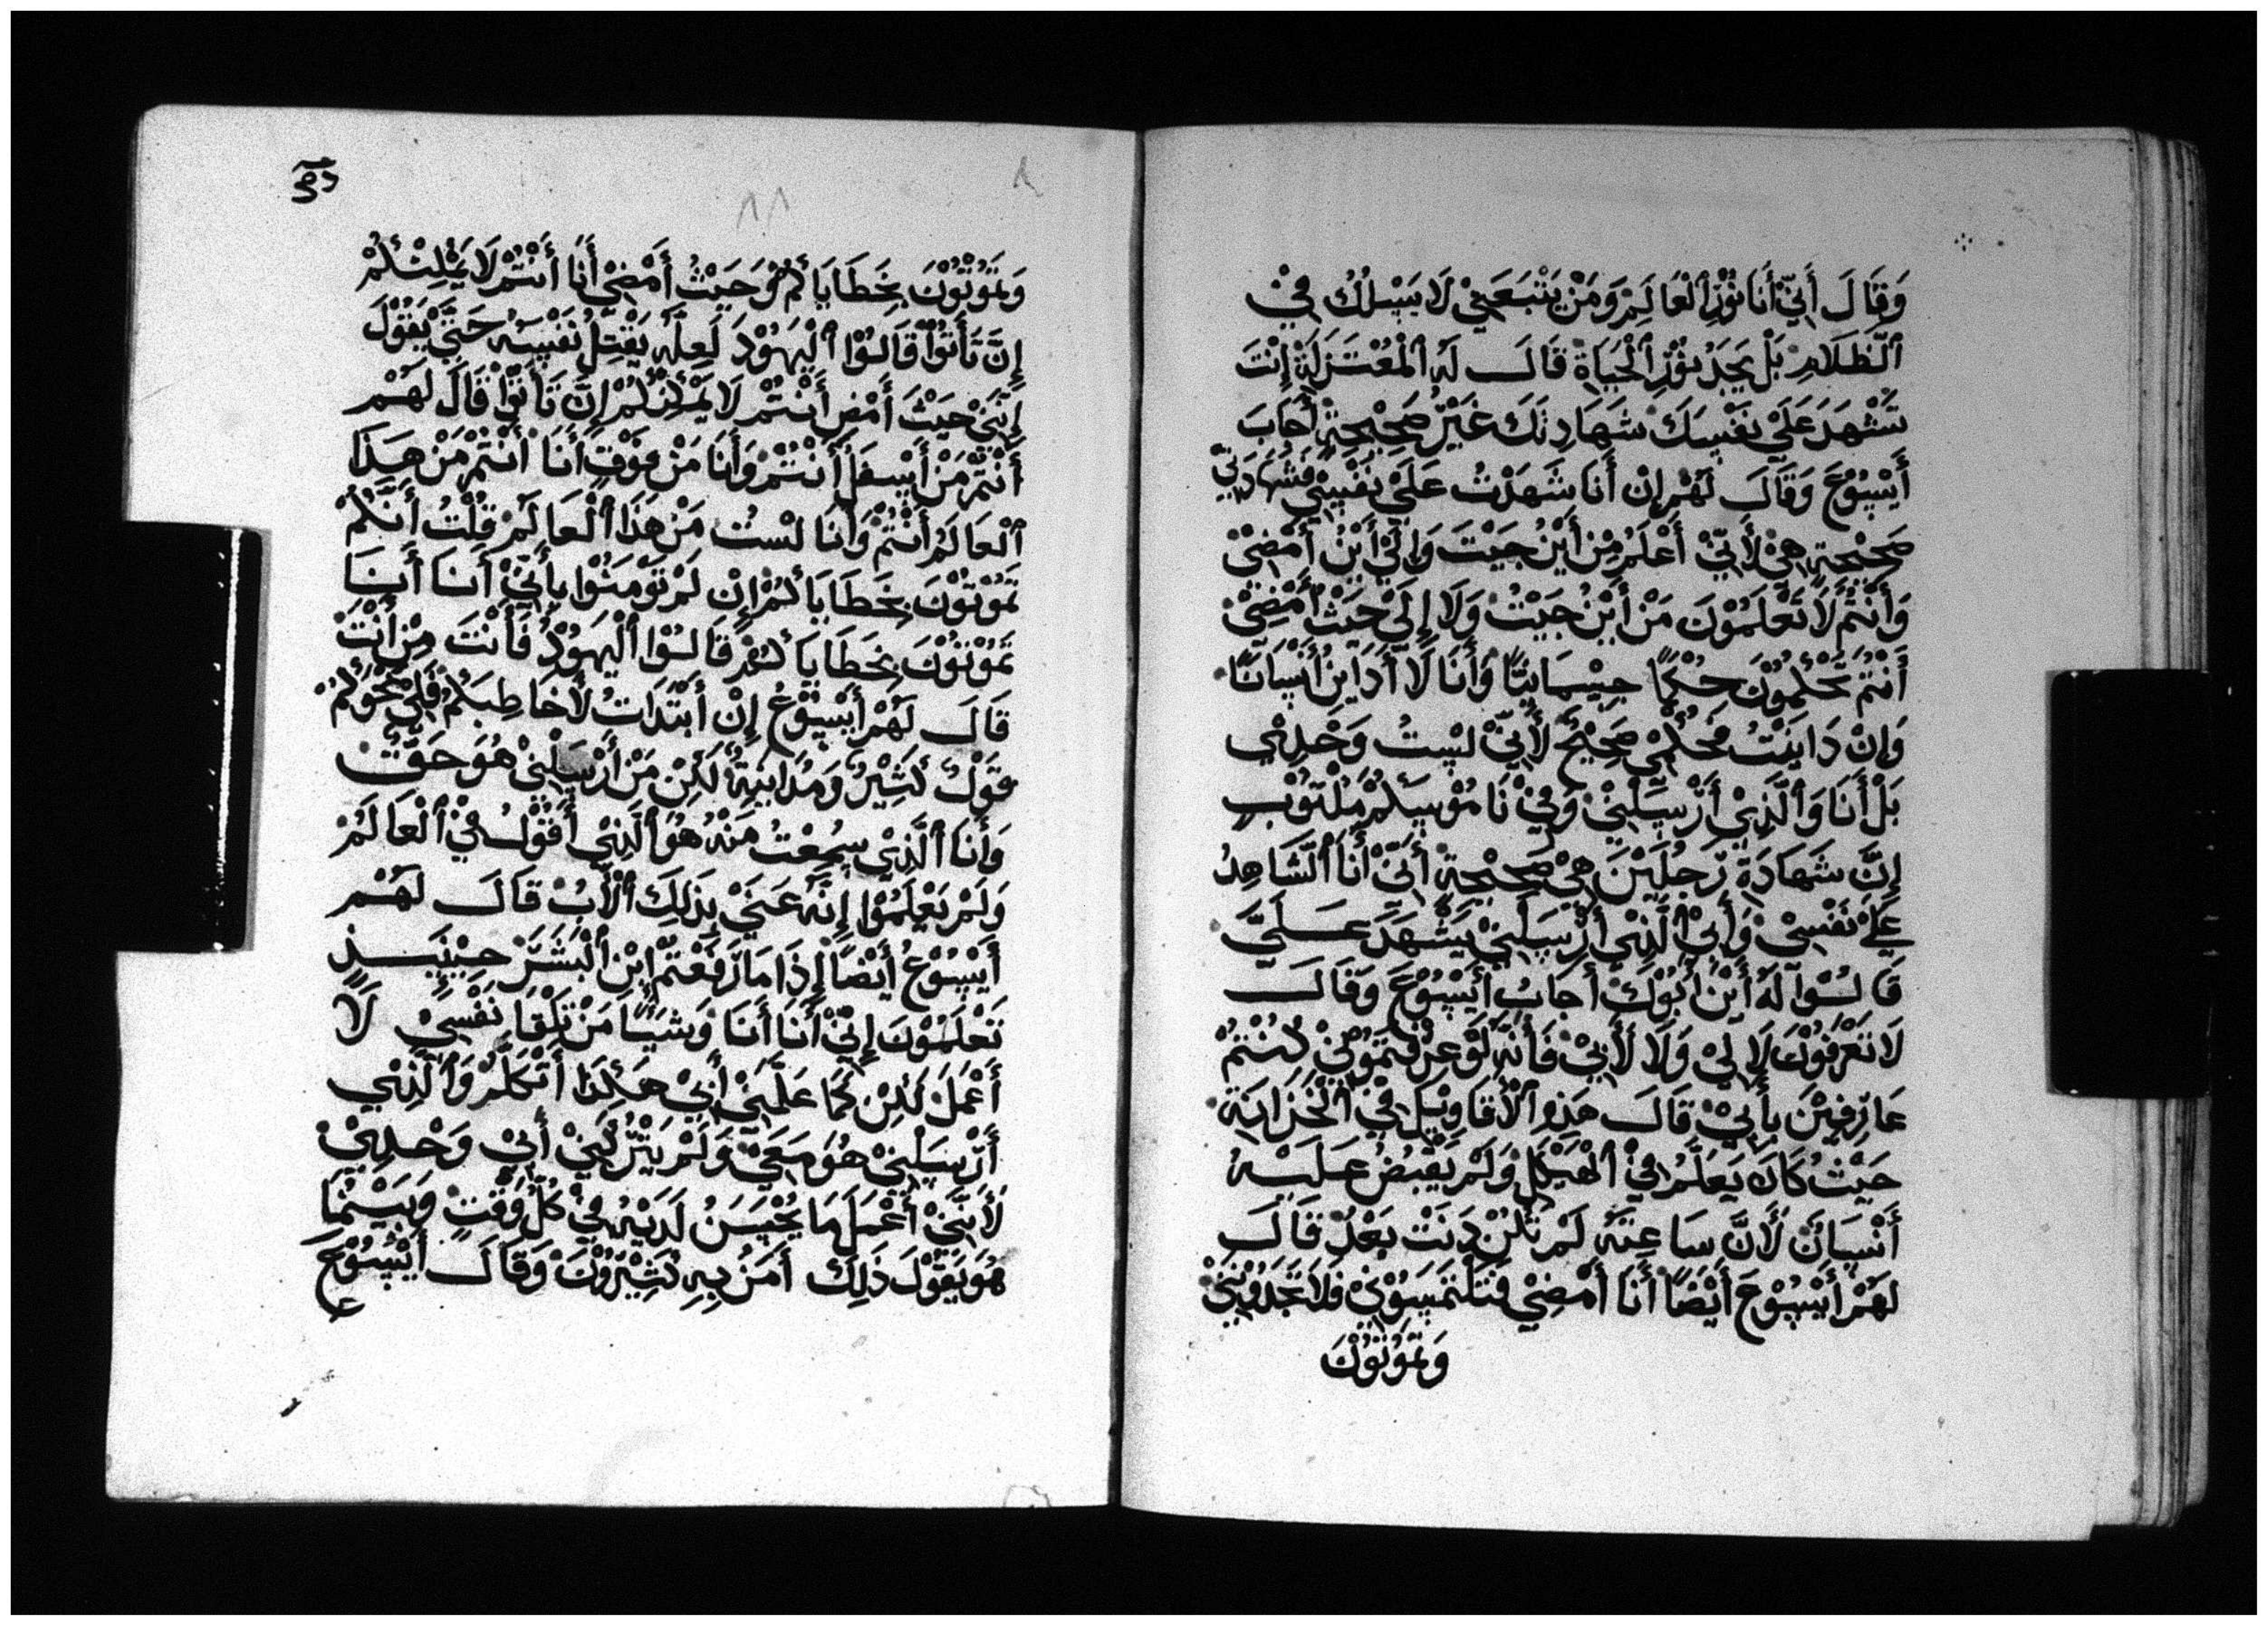 وَقَالَ أَنِّيْ أَنَا نُوْرُ ٱلْعَالَمِ وَمَنْ يَتْبَعَنِيْ لَا يَسْلُكُ فِيْ
ٱلظَّلَامِ بَلْ يَجَدُ نُوْرُ ٱلْحَيَاةِ قَالَ لَهُ ٱلْمُعْتَزِلَةْ إِنْتَ
تَشْهَدَ عَلَيْ نَفْسِكَ شَهَادِتَكَ غَيْرُ صَحِيْحَةٍ أَجَابَ
أَيْسُوْعَ وَقَالَ لَهُمْ إِنْ أَنَا شَهَدْتُ عَلَيْ نَفْسِيْ فَشَهَادَتِيْ
صَحِيْحَةٍ هِيْ لِأَنِّيْ أَعْلَمُ مِنْ أَيْنَ جِيْتَ وَإِلَيْ أَيْنُ أَمْضِيْ
وَأَنْتُمْ لَا تَعْلَمُوْنَ مَنْ أَيْنُ جَيْتُ وَلَا إِلَيْ حَيْثُ أَمْضِيْ
أَنْتُمْ تَحْكُمُوْنَ حُكْمًا جِسْمَانِيًّا وَأَنَا لَا أَدَايِنُ أَنْسَانًا
وَإِنْ دَايَنْتُ فَحُكْمِيْ صَحِيْحٌ لِأَنِّيْ لَيْسْتُ وَحْدِيْ
بَلْ أَنَا وَٱلَّذِيْ أَرْسَلَنِيْ وَفِيْ نَامُوْسِكُمْ مَكْتُوْبٍ
إِنَّ شَهَادَةَ رَجُلَيْنِ هِيْ صَحِيْحَةٍ أَنِّيْ أَنَا ٱلشَّاهِدُ
عَلَيْ نَفْسِيْ وَأَبِيْ ٱلَّذِيْ أَرْسَلَنِيْ يَشْهَدَ عَلَيَّ
قَالُوْا لَهُ أَيْنَ أَبُوْكَ أَجَابَ أَيْسُوْعَ وَقَالَ
لَا تَعْرَفُوْنَ لَا لِيْ وَلَا لِأَبِيْ فَأَنَّهُ لَوْ عَرَفْتَمُوْنِيْ كُنْتُمْ
عَارِفِيْنَ بِأَبِيْ قَالَ هَذِهِ ٱلْأَقَاوِيْلَ فِيْ ٱلْخَزَانَةِ
حَيْثُ كَانَ يَعَلَّمُ فِيْ ٱلْهَيْكَلِ وَلَمْ يَقْبِضُ عَلَيْهُ
أَنْسَانٌ لِأَنَّ سَاعِتَهُ لَمْ تَكُنْ دَنَتْ بَعْدُ قَالَ
لَهُمْ أَيْسُوْعَ أَيْضًا أَنَا أَمْضِيْ فَتَلْتَمَسُوْنِيْ فَلَا تَجَدُوْنَنِيْ
وَتَمَوْتُوْنَ
وَتَمَوْتُوْنَ بِخَطَايَاكُمْ وَحَيْثُ أَمْضِيْ أَنَا أَنْتُمْ لَا يَمْكِنْكُمْ
إِنَّ تَأْتُوْا قَالُوْا ٱلْيَهُوْدَ لَعِلَّهُ يَقْتِلُ نَفْسَهُ حَتَّيْ يَقُوْلَ
إِنَّنِيْ حَيْثَ أَمْضِ أَنْتُمْ لَا يَمْكِنْكُمْ إِنَّ تَأْتُوْا قَالَ لَهُمْ
أَنْتُمْ مَنْ أَسْفَلِ أَنْتُمْ وَأَنَا مَنْ فَوْقَ أَنَا أَنْتُمْ مَنْ هَذَا
ٱلْعَالَمْ أَنْتُمْ وَأَنَا لَسْتُ مَنْ هَذَا ٱلْعَالَمْ قُلْتُ أَنَّكُمْ
تَمُوْتُوْنَ بِخَطَايَاكُمْ إِنْ لَمْ تُوْمَنُوْا بِأَنِّيْ أَنَا أَنَا
تَمُوْتُوْنَ بِخَطَايَاكُمْ قَالُوْا ٱلْيَهُوْدُ فَأَنْتَ مِنْ أَنْتَ
قَالَ لَهُمْ أَيْسُوْعُ إِنْ أَبْتَدَاتُ لِأُخَاطِبَكُمْ فَلِيْ نَحْوَكُمْ
قَوْلٌ كَثِيْرٌ وَمُدَايَنَةٌ لَكِنْ مَنْ أَرْسَلَنِيْ هُوَ حَقٌّ
وَأَنَا ٱلَّذِيْ سِمْعْتُ مَنْهُ هُوَ ٱلَّذِيْ أَقُوْلُ فِيْ ٱلْعَالَمْ
وَلَمْ يَعْلَمُوْا إِنَّهُ عَنَيْ بِذَلِكَ ٱلْأَبُ قَالَ لَهُمْ
أَيْسُوْعُ أَيْضًا إِذَا مَا رَفَعْتُمْ إِبْنِ ٱلْبَشَرَ حِيْنَيِذٍ
تَعْلَمُوْنَ إِنِّيْ أَنَا أَنَا وَشَيْئًا مَنْ تِلْقَا نَفْسِيْ لَا
أَعْمَلَ لَكِنْ كَمَا عَلَّمَنِيْ أَبِيْ هَكَذَا أَتْكَلَّمْ وَٱلَّذِيْ
أَرْسَلَنِيْ هُوَ مَعَيْ وَلَمْ يَتْرُكَنِيْ أَبِيْ وَحْدِيْ
لَأَنَّنِيْ أَعْمَلُ مَا يُحْسِنُ لَدَيْهِ فِيْ كُلُّ وَقْتٍ وَبَيْنَمَا
هُوَ يَقُوْلَ ذَلِكَ أَمَنُ بِهِ كَثِيْرُوْنَ وَقَالَ أَيْسُوْعَ